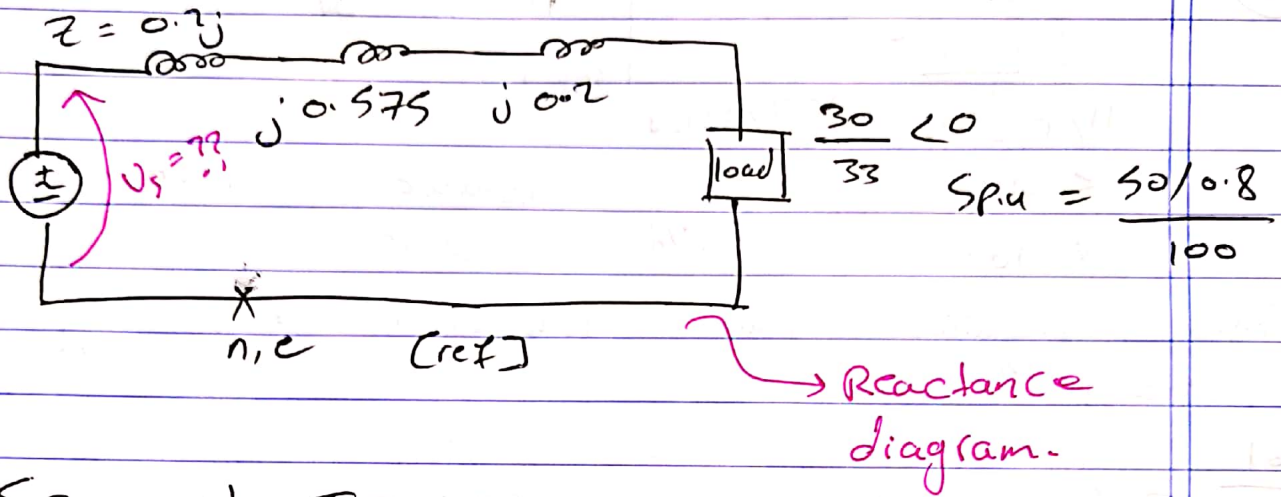 Z = 0.2j
j0.575
j0.2
Vs = ??
±
load
30/33 <0
Sp.u = 50/0.8 / 100
n, e [ref]
Reactance
diagram.